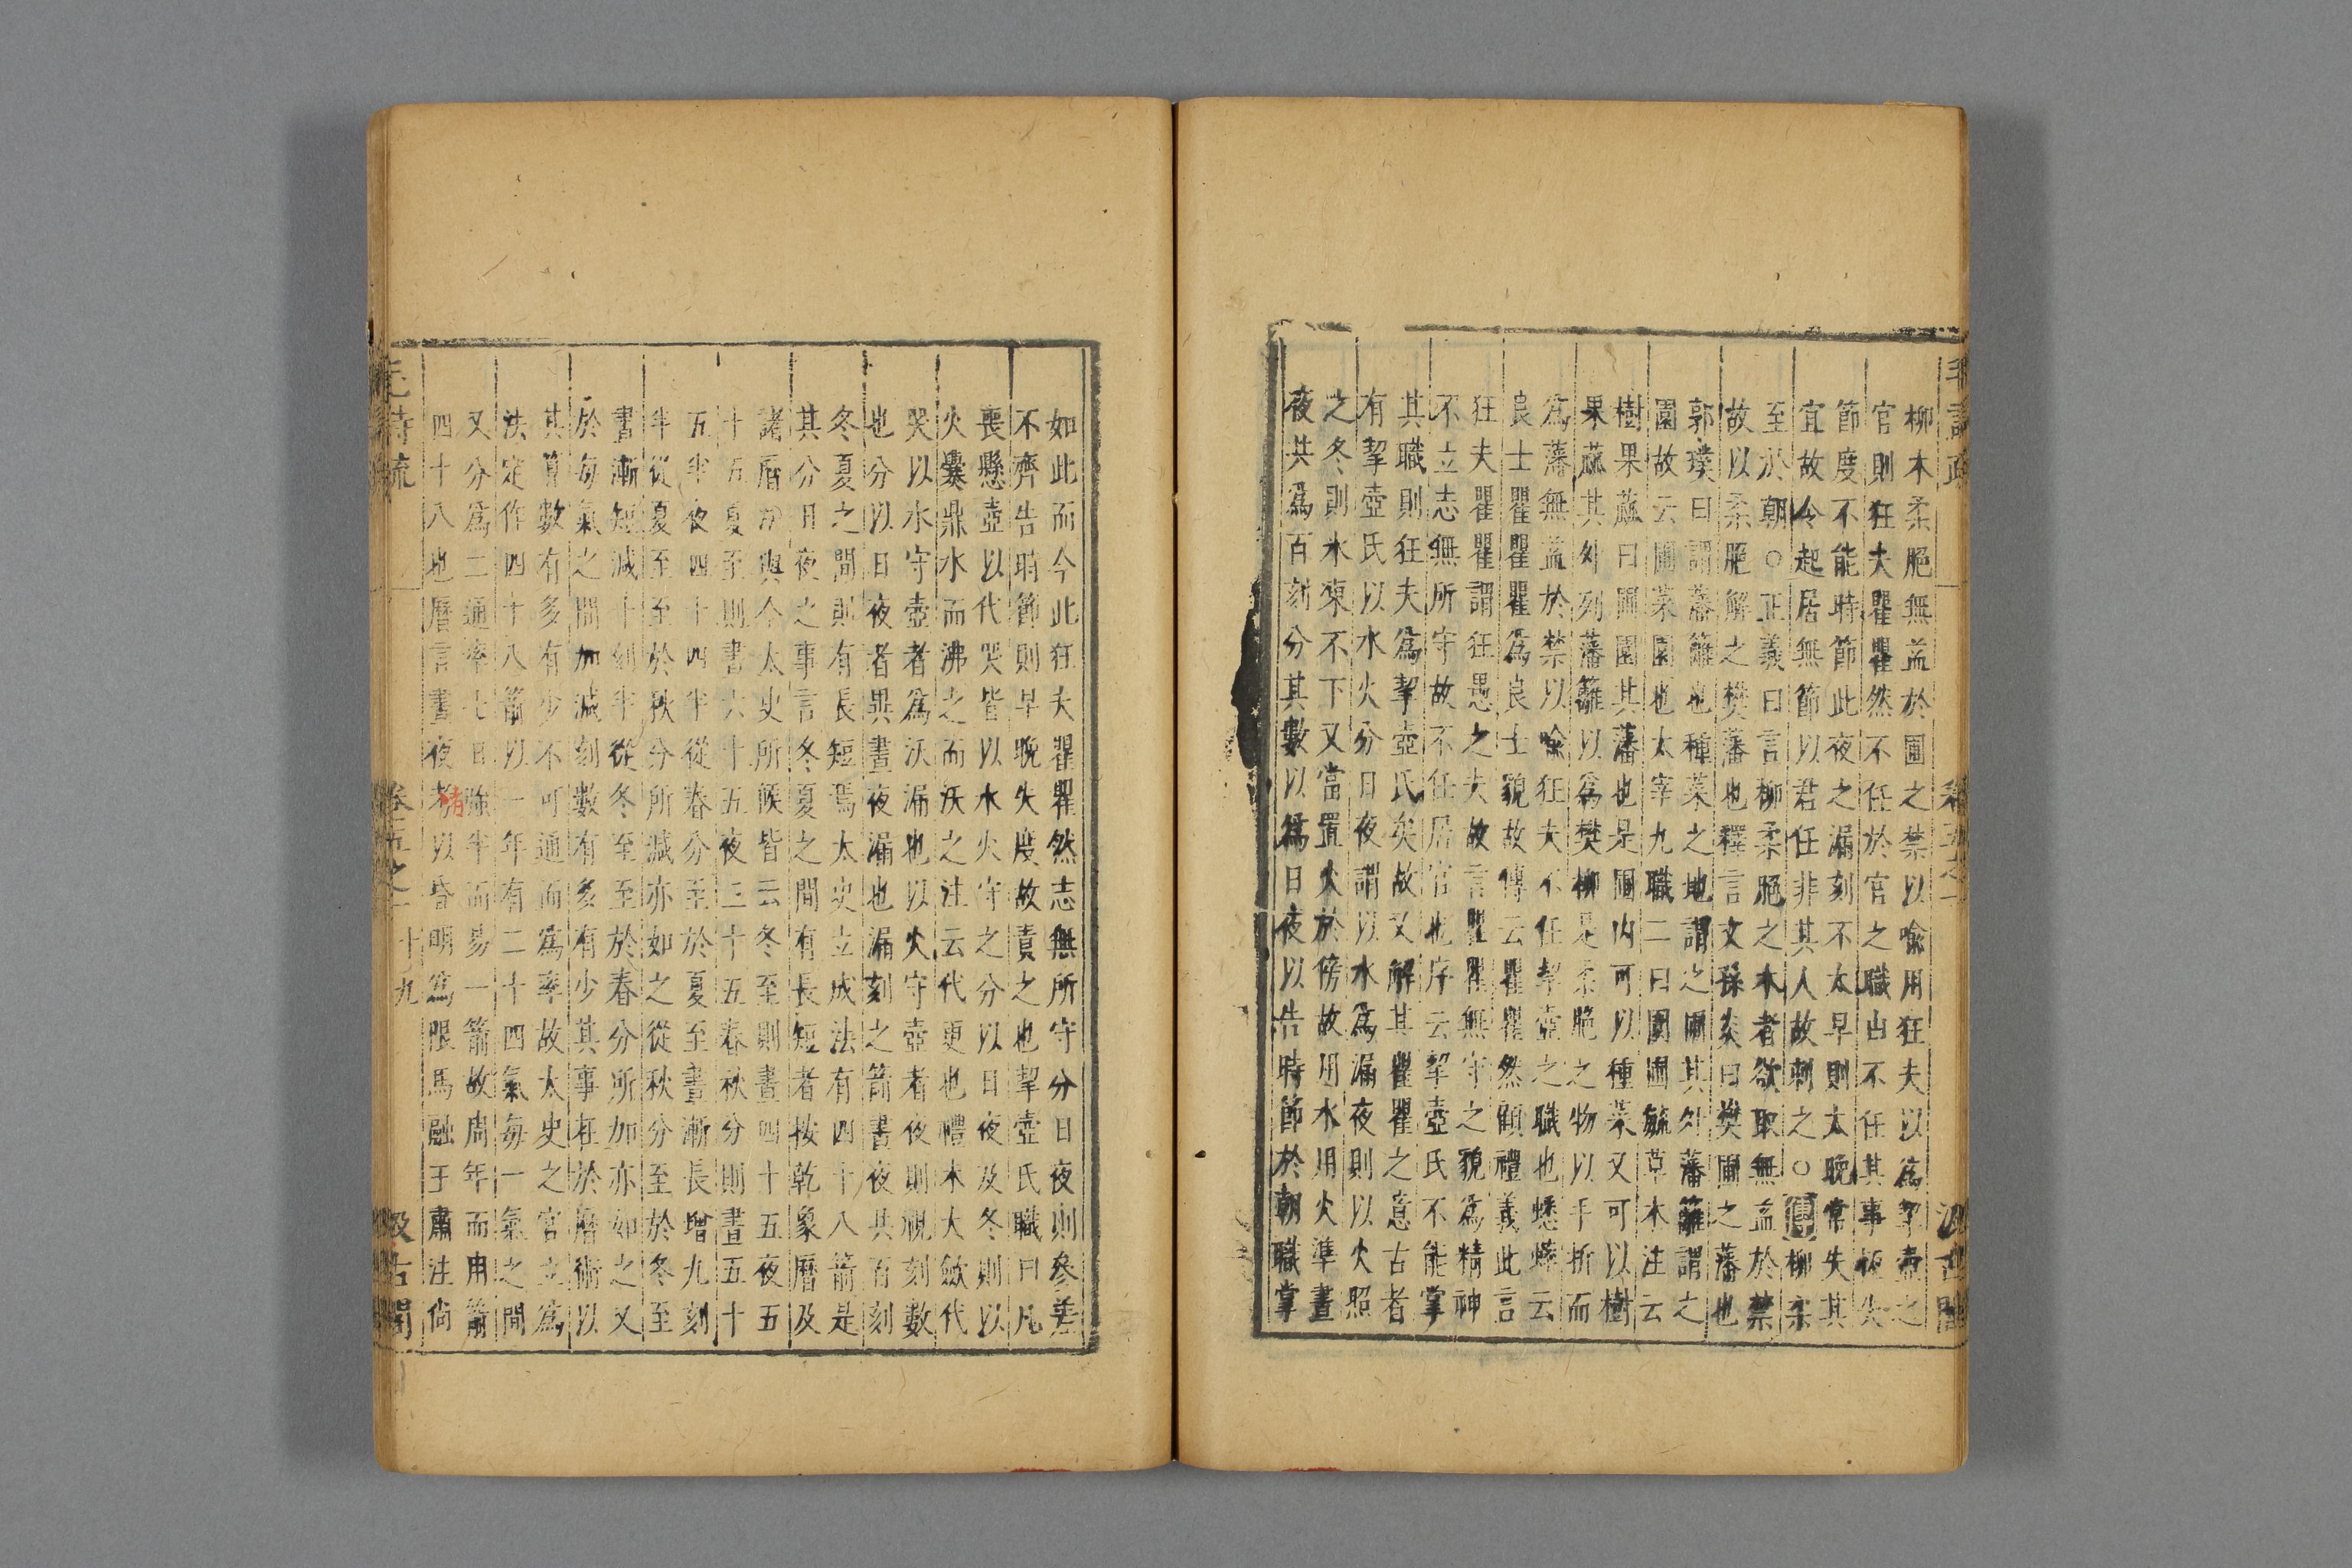 柳木柔脆無益於圃之禁以喻用狂夫以爲挈壺之
官則狂夫瞿瞿然不任於官之職由不任其事恆失
節度不能時節此夜之漏刻不太早則太晚常失其
宜故令起居無節以君任非其人故刺之○傳柳柔
至於朝○正義曰言柳柔脆之木者欲取無益於禁
故以柔脆解之樊藩也釋言文孫炎曰樊圃之藩也
郭璞曰謂藩籬也種菜之地謂之圃其外藩籬謂之
園故云圃菜園也太宰九職二曰園圃毓草木注云
樹果蓏曰圃園其藩也是圃內可以種菜又可以樹
果蓏其外列藩籬以爲樊柳是柔脆之物以手折而
爲藩無益於禁以喻狂夫不任挈壺之職也蟋蟀云
良士瞿瞿瞿爲良士貌故傳云瞿瞿然顧禮義此言
狂夫瞿瞿謂狂愚之夫故言瞿瞿無守之貌爲精神
不立志無所守故不任居官也序云挈壺氏不能掌
其職則狂夫爲挈壺氏矣故又解其瞿瞿之意古者
有挈壺氏以水火分日夜謂以水爲漏夜則以火照
之冬則水凍不下又當置火於傍故用水用火準晝
夜共爲百刻分其數以爲日夜以告時節於朝職掌
毛詩疏
卷五之一
汲古閣
如此而今此狂夫瞿瞿然志無所守分日夜則參差
不齊告時節則早晚失度故責之也挈壺氏職曰凡
喪懸壺以代哭皆以水火守之分以日夜及冬則以
火爨鼎水而沸之而沃之注云代更也禮木大斂代
哭以水守壺者爲沃漏也以火守壺者夜則視刻數
也分以日夜者異晝夜漏也漏刻之箭晝夜共百刻
冬夏之間則有長短焉太史立成法有四十八箭是
其分日夜之事言冬夏之間有長短者按乾象曆及
諸曆法與今太史所候皆云冬至則晝四十五夜五
十五夏至則晝六十五夜三十五春秋分則晝五十
五半夜四十四半從春分至於夏至晝漸長增九刻
半從夏至至於秋分所減亦如之從秋分至於冬至
晝漸短減十刻半從冬至至於春分所加亦如之又
於每氣之間加減刻數有多有少其事在於曆術以
其算數有多有少不可通而爲率故太史之官立爲
法定作四十八箭以一年有二十四氣每一氣之間
又分爲二通率七日強半而易一箭故周年而用箭
四十八也曆言晝夜考以昏明爲限馬融王肅注尚
者
毛詩疏
卷五之一
十九
汲古閣